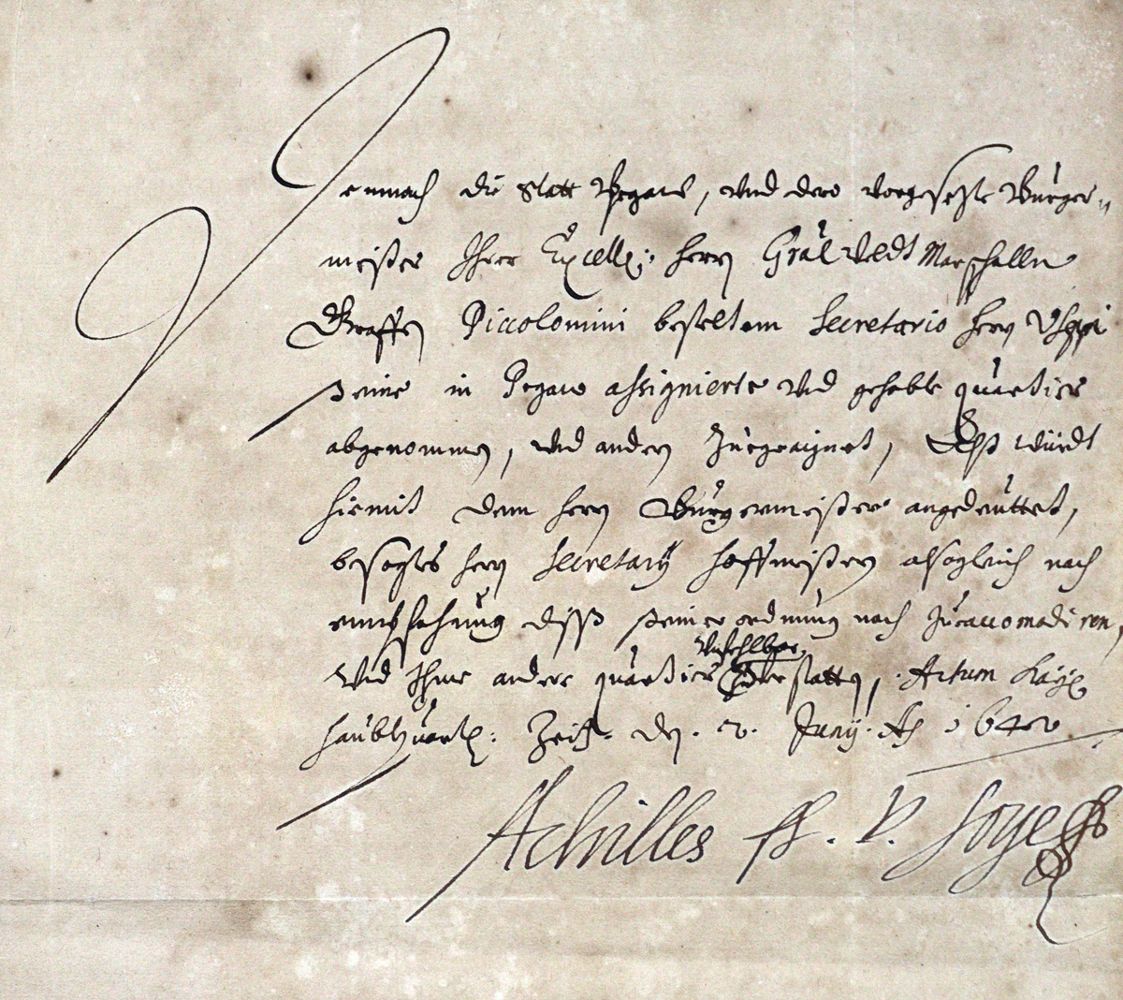 Demnach die Statt Pegaw, vnd dero vorgesezte Bürger„
meister Ihrer Excell: herrn Gral Veldt Marschalln
Graffen Piccolomini besteltem Secretario herrn
seine in Pegaw assignierte vnd gehabte quartier
abgenommen, vnd andern Zuegeaignet, Alß würdt
hiemit dem herrn Bürgermeister angedeuttet,
besagtes herrn Secretarij hoffmeistern alsogleich nach
empfahung diß seiner ordnung nach Zu accomodiren,
vnd Ihme andere quartier Vnfehlbar Zuerstatten, Actum Kay:
haubtquart: den. 2. Junij. Aо 1640
Achilles fh. v. Soye